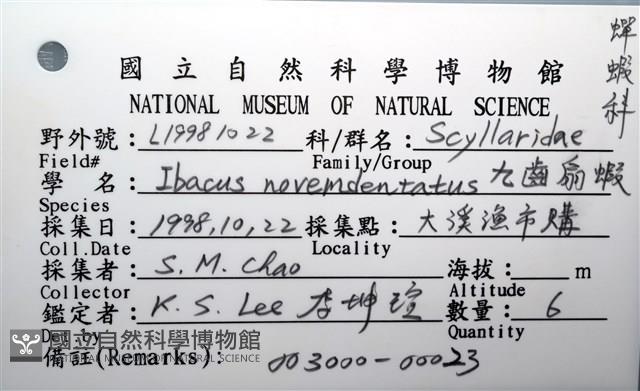 蟬蝦科
國立自然科學博物館
NATIONAL MUSEUM OF NATURAL SCIENCE
野外號：L19981022 科/群名：Scyllaridae
Field# Family/Group
學 名：Ibacus novemdentatus 九齒扇蝦
Species
採集日：1998,10,22 採集點：大溪漁市購
Coll.Date Locality
採集者：S. M. Chao 海拔： m
Collector Altitude
鑑定者：K. S. Lee 李坤瑄 數量：6
Det.by Quantity
國立自然科學博物館
NATIONAL MUSEUM OF NATURAL SCIENCE
備註(Remarks)： 003000-00023